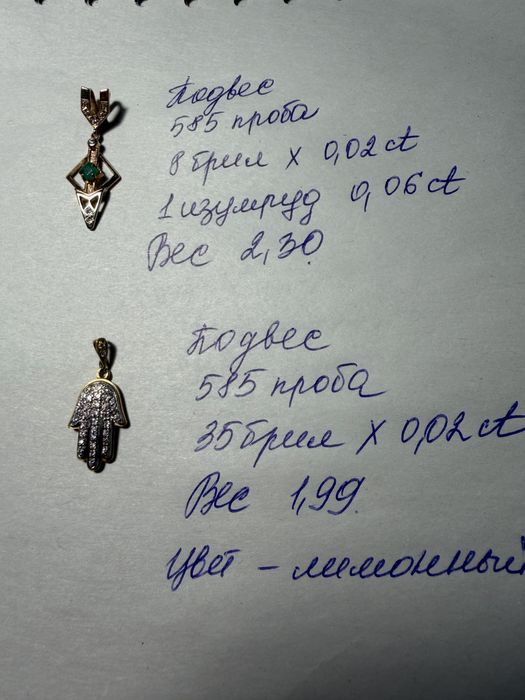 Подвес
585 проба
8 брил х 0,02 ct
1 изумруд 0,06 ct
Вес 2,30
Подвес
585 проба
35 брил х 0,02 ct
Вес 1,99
Цвет – лимонный